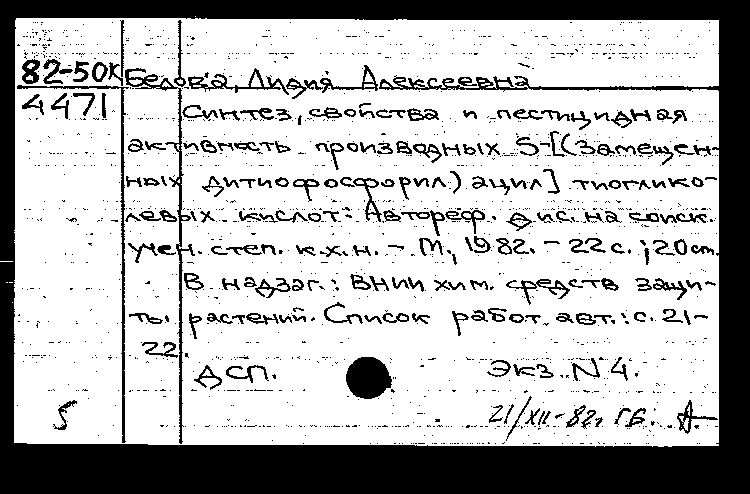 82-50к Белова, Лидия Алексеевна
4471 Синтез, свойства и пестицидная
активность производных S-[(замещен-
ных дитиофосфорил) ацил] тиоглико-
левых кислот: Автореф. дис. на соиск.
учен. степ. к.х.н. - М., 1982. - 22 с. ; 20 cm.
В надзаг.: ВНИИ хим. средств защи-
ты растений. Список работ авт.: с. 21-
22.
ДСП. Экз. N 4.
5 21/XII-82г. ГБ.